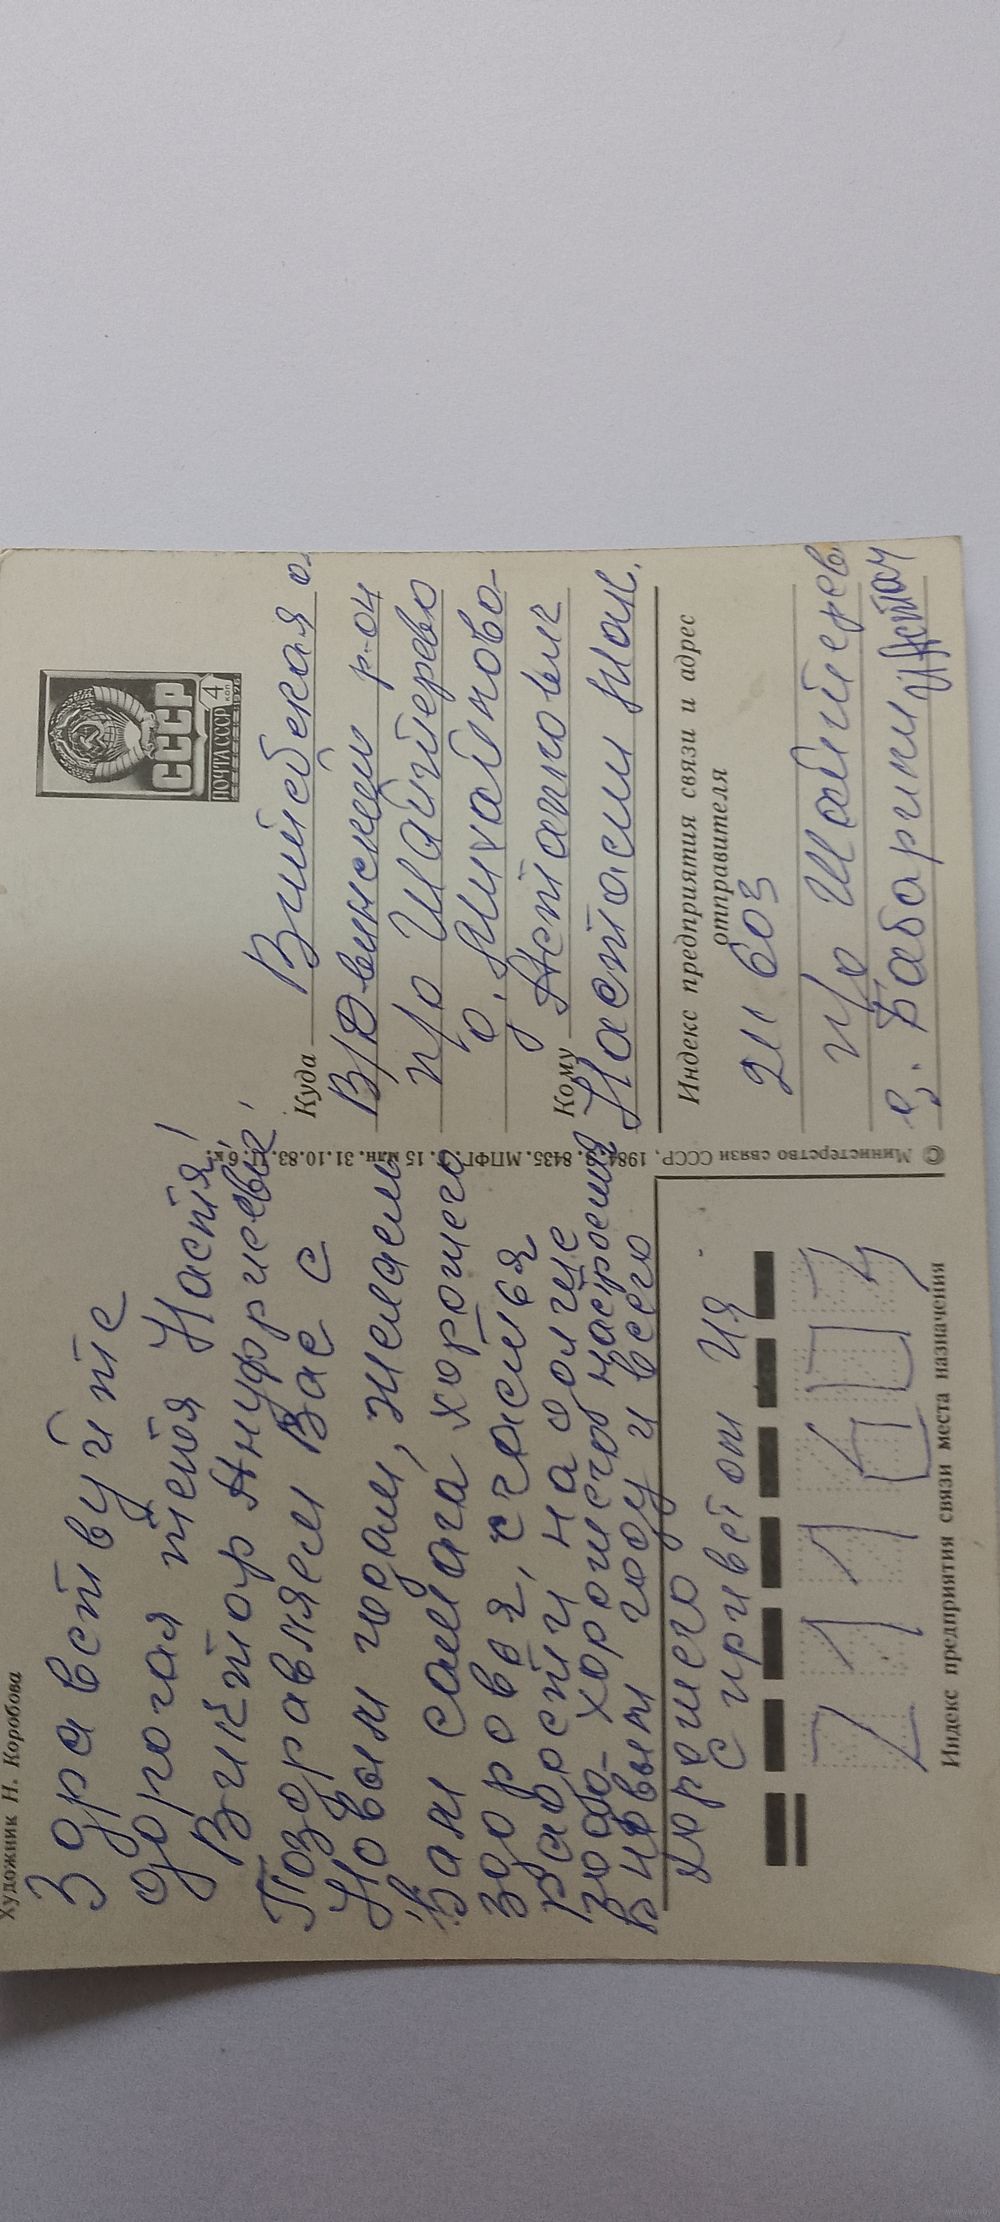 Художник Н. Коробова
Здравствуйте
дорогая тётя Настя!
Виктор Ануфриевич,
Поздравляем Вас с
Новым годом, желаем
Вам самага хорошего
здоровья, счастья
радости на долгие
года, хорошего настроения
В новым году и всего
хорошего
с привет от
© Министерство связи СССР, 1984. З. 8435. МПФГ. Т. 15 млн. 31.10.83. Ц. 6 к.
ПОЧТА СССР 4 КОП
СССР
Куда Витебская о.
В/Двинский р-он
п/о Шайтерево
д. Михайлово
Кому
Настасии Мих.
Индекс предприятия связи и адрес
отправителя
211603
п/о Шайтерев
д.
211603
Индекс предприятия связи места назначения